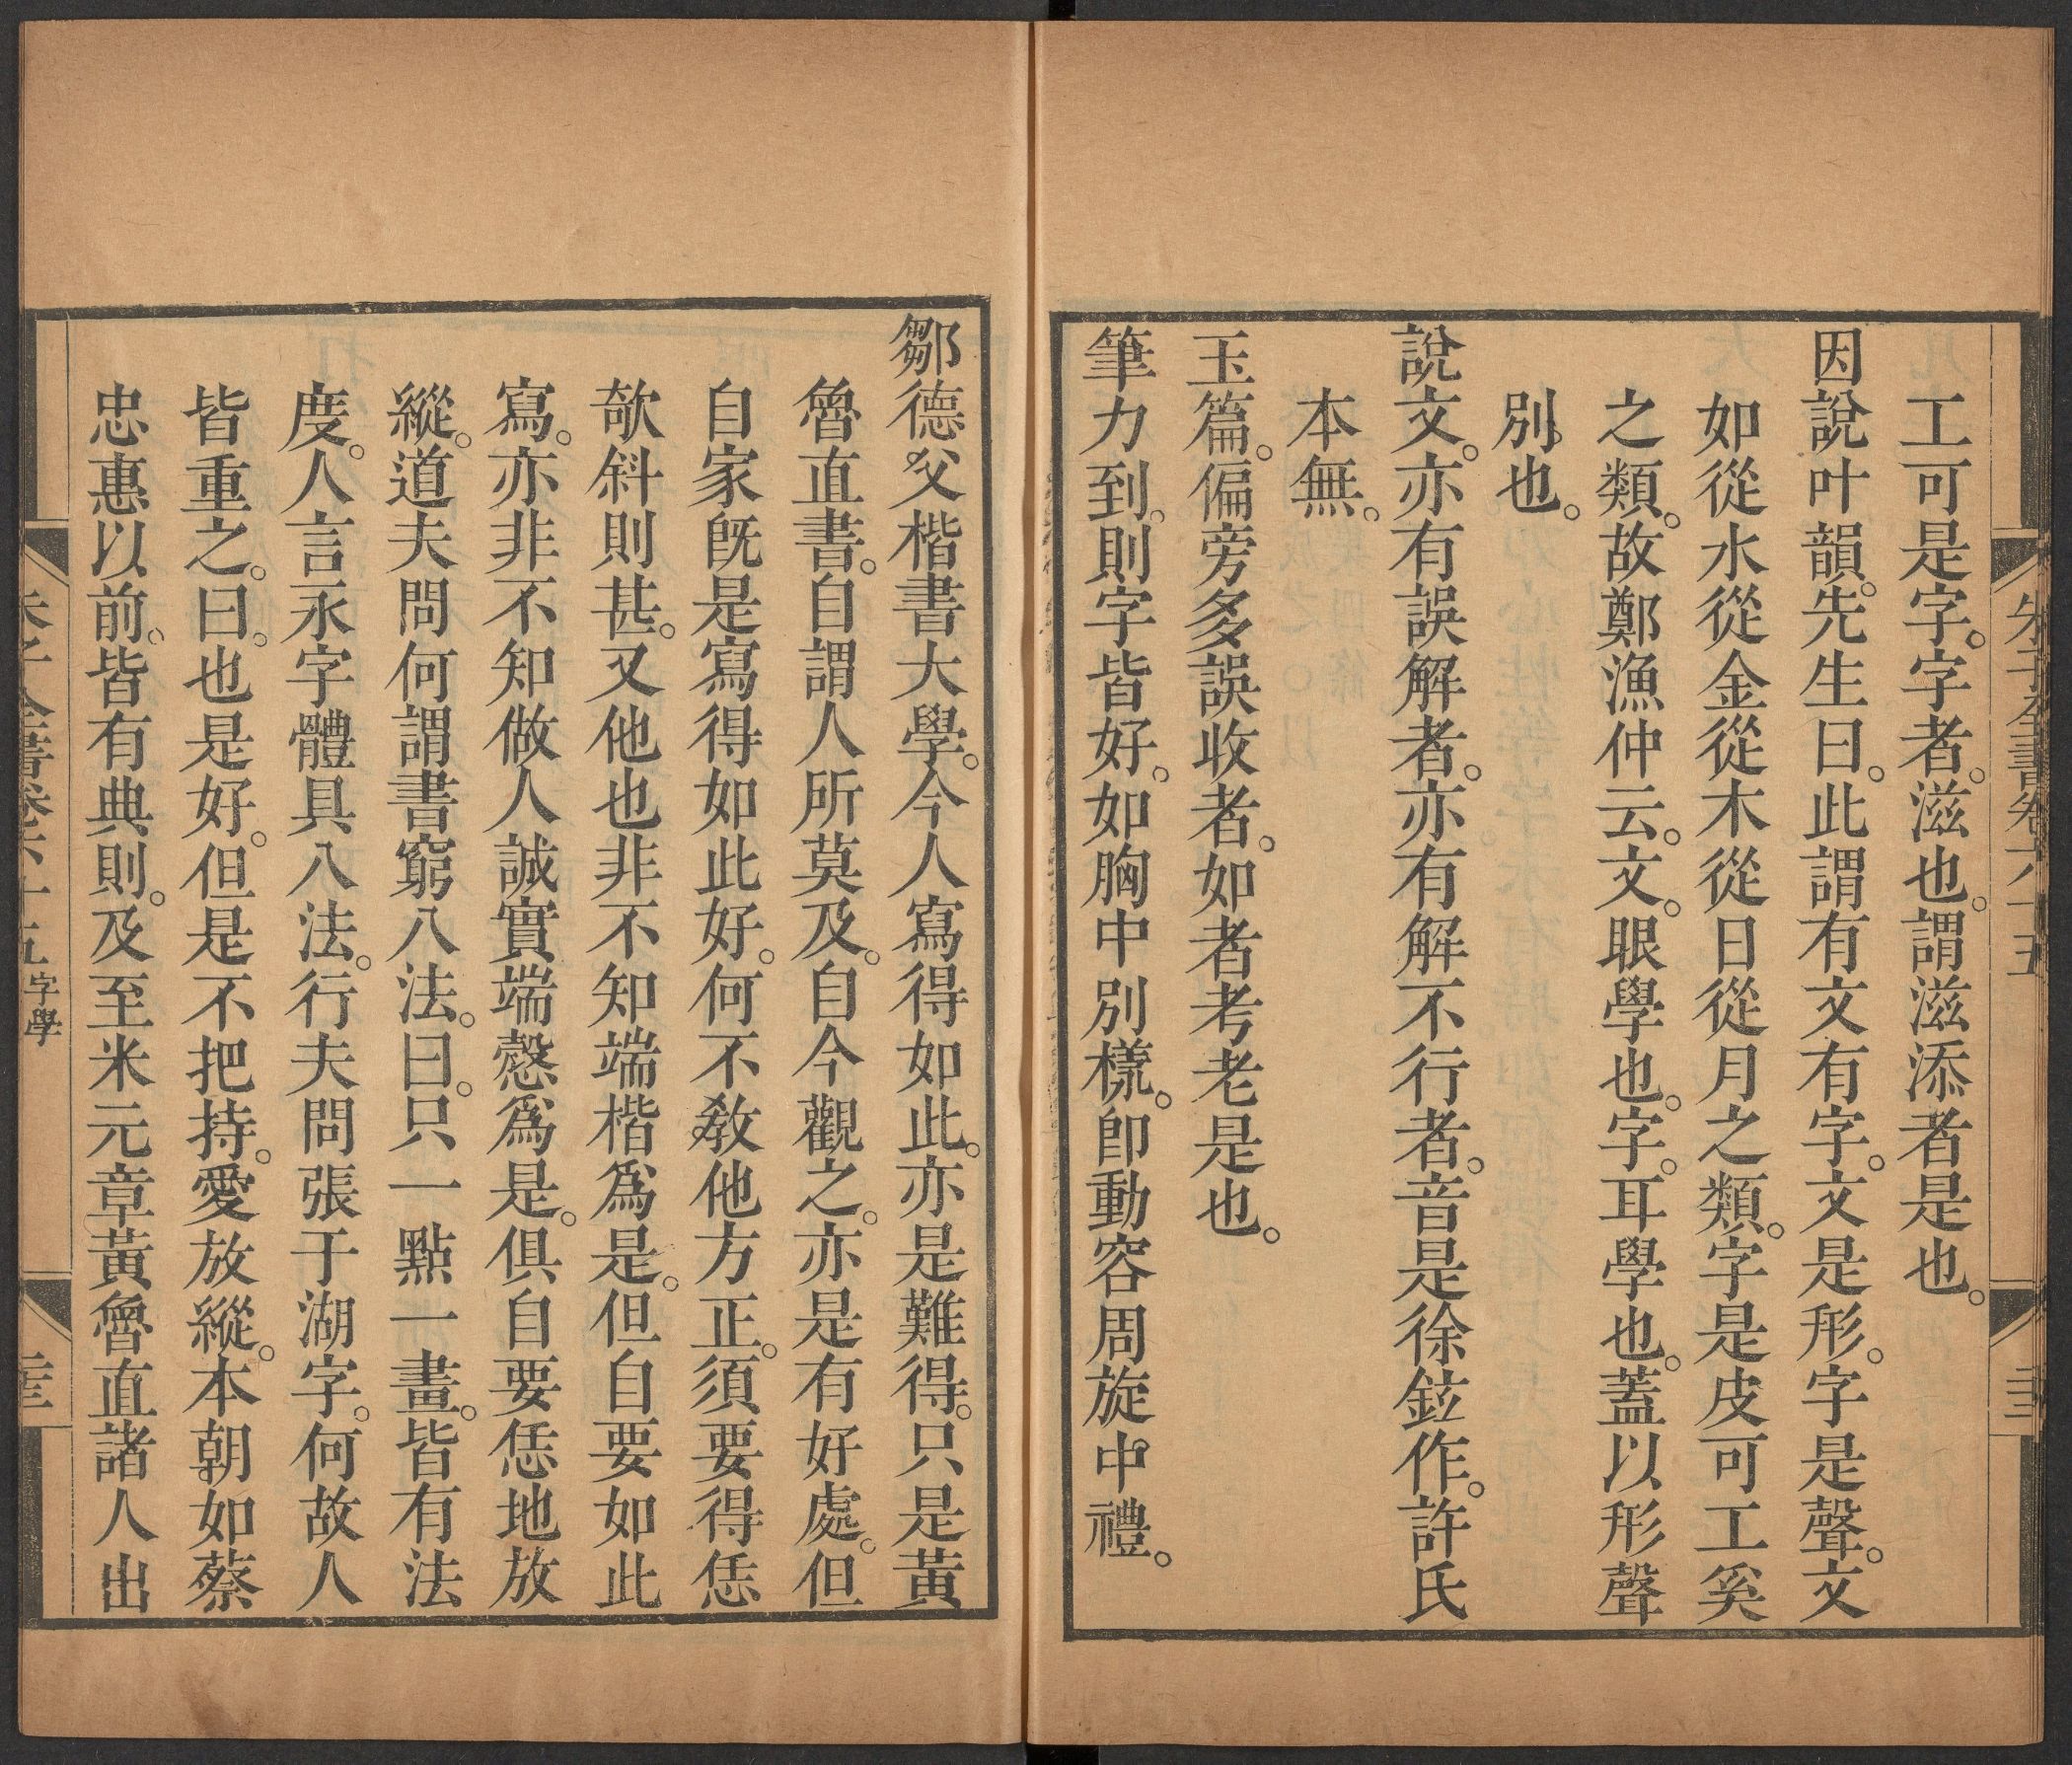 朱子全書卷六十五
工可是字。字者。滋也。謂滋添者是也。
因說叶韻。先生曰。此謂有文有字。文是形。字是聲。文
如從水從金從木從日從月之類。字是皮可工奚
之類。故鄭漁仲云。文。眼學也。字。耳學也。蓋以形聲
別也。
說文。亦有誤解者。亦有解不行者。音是徐鉉作。許氏
本無。
玉篇。偏旁多誤收者。如者考老是也。
筆力到。則字皆好。如胸中別樣。卽動容周旋中禮。
鄒德父楷書大學。今人寫得如此。亦是難得。只是黃
魯直書。自謂人所莫及。自今觀之。亦是有好處。但
自家旣是寫得如此好。何不敎他方正。須要得恁
欹斜則甚。又他也非不知端楷爲是。但自要如此
寫。亦非不知做人誠實端慤爲是。俱自要恁地放
縱。道夫問何謂書窮八法。曰。只一點一畫。皆有法
度。人言永字體具八法。行夫問張于湖字。何故人
皆重之。曰。也是好。但是不把持。愛放縱。本朝如蔡
忠惠以前。皆有典則。及至米元章黃魯直諸人出
字學